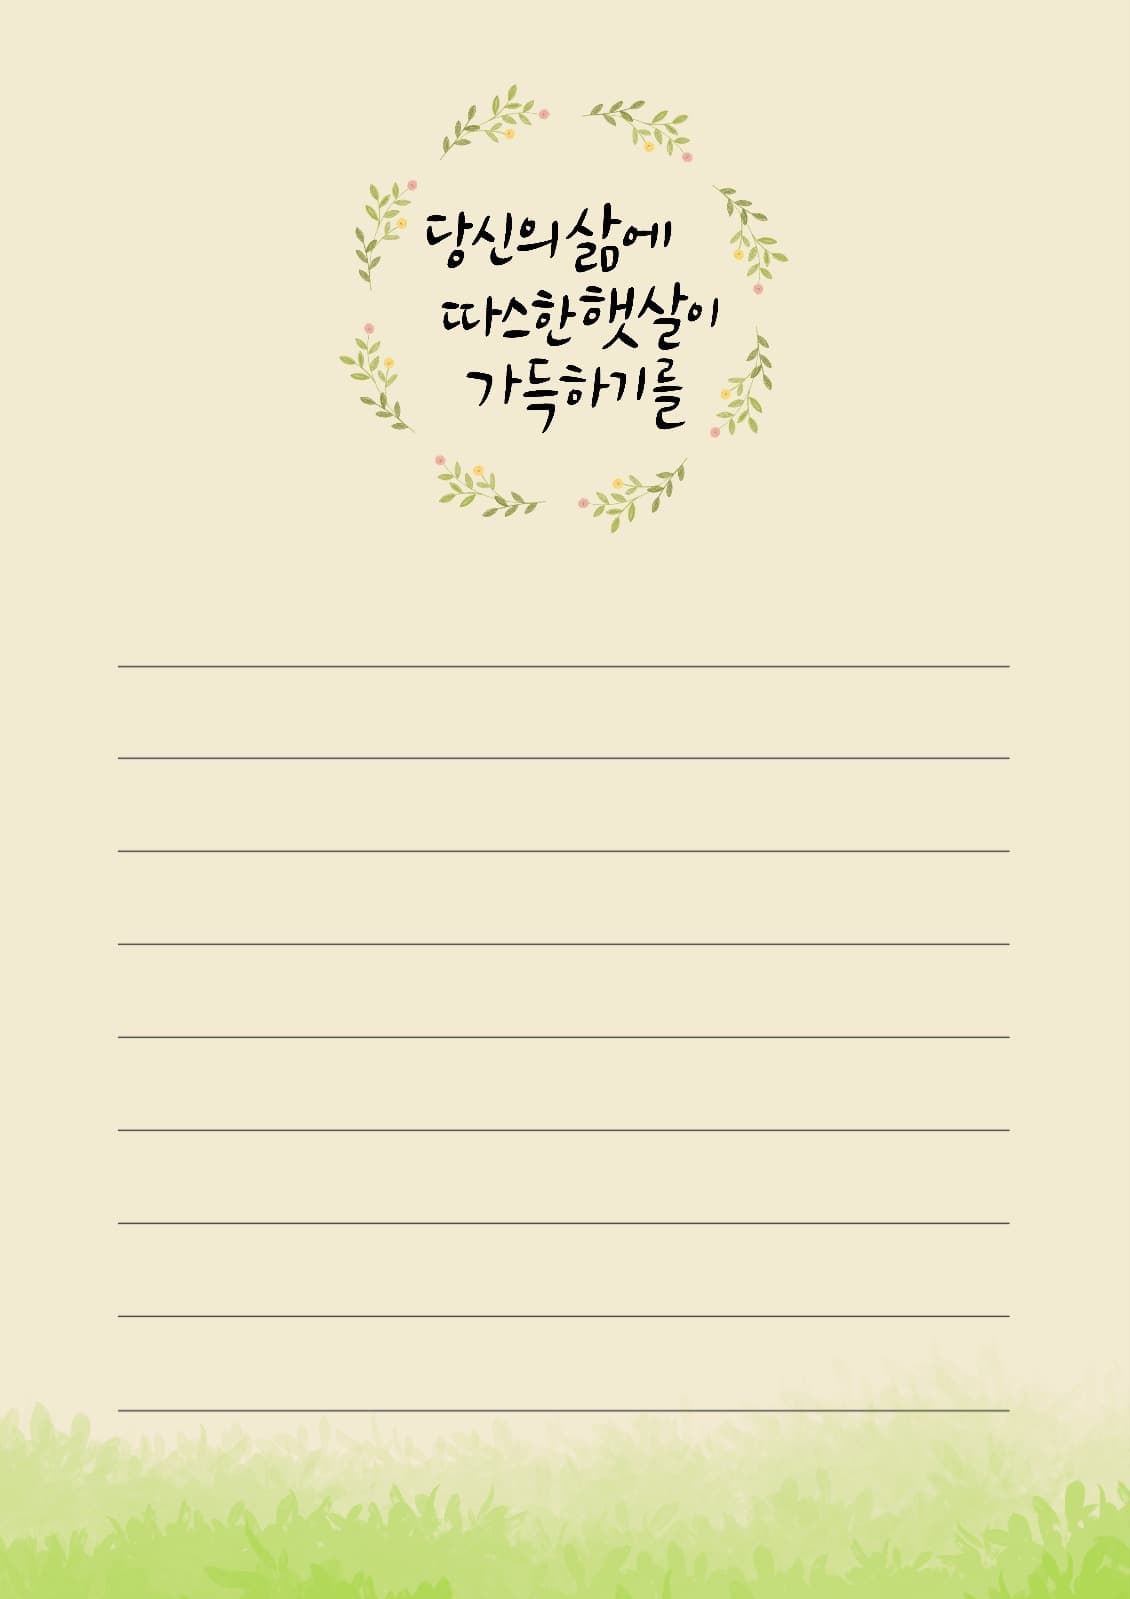 당신의 삶에
따스한 햇살이
가득하기를